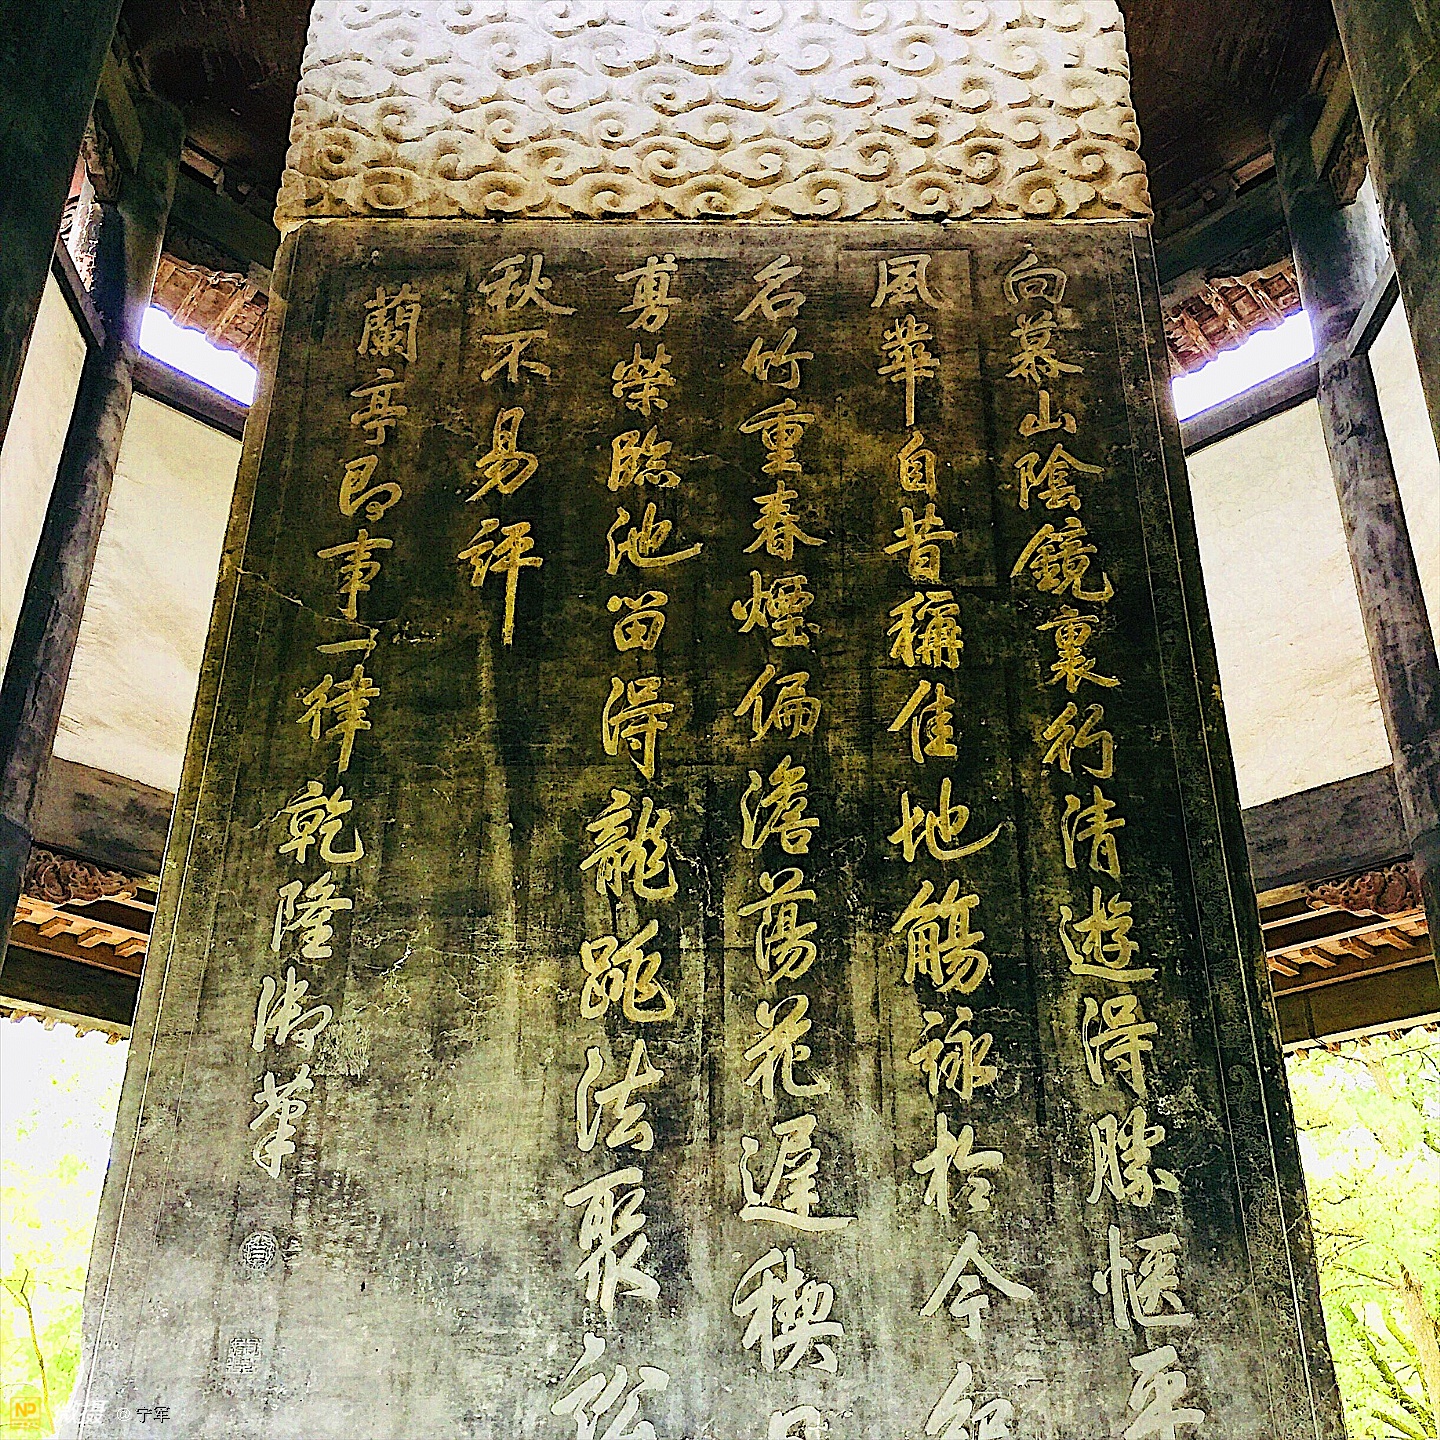 向慕山陰鏡裏行清遊得勝愜平
風華自昔稱佳地觴詠於今紀
名竹重春煙偏澹蕩花遲禊日
尃榮臨池留得龍跳法聚訟
秋不易評
蘭亭即事一律乾隆御筆
NP
© 宁军